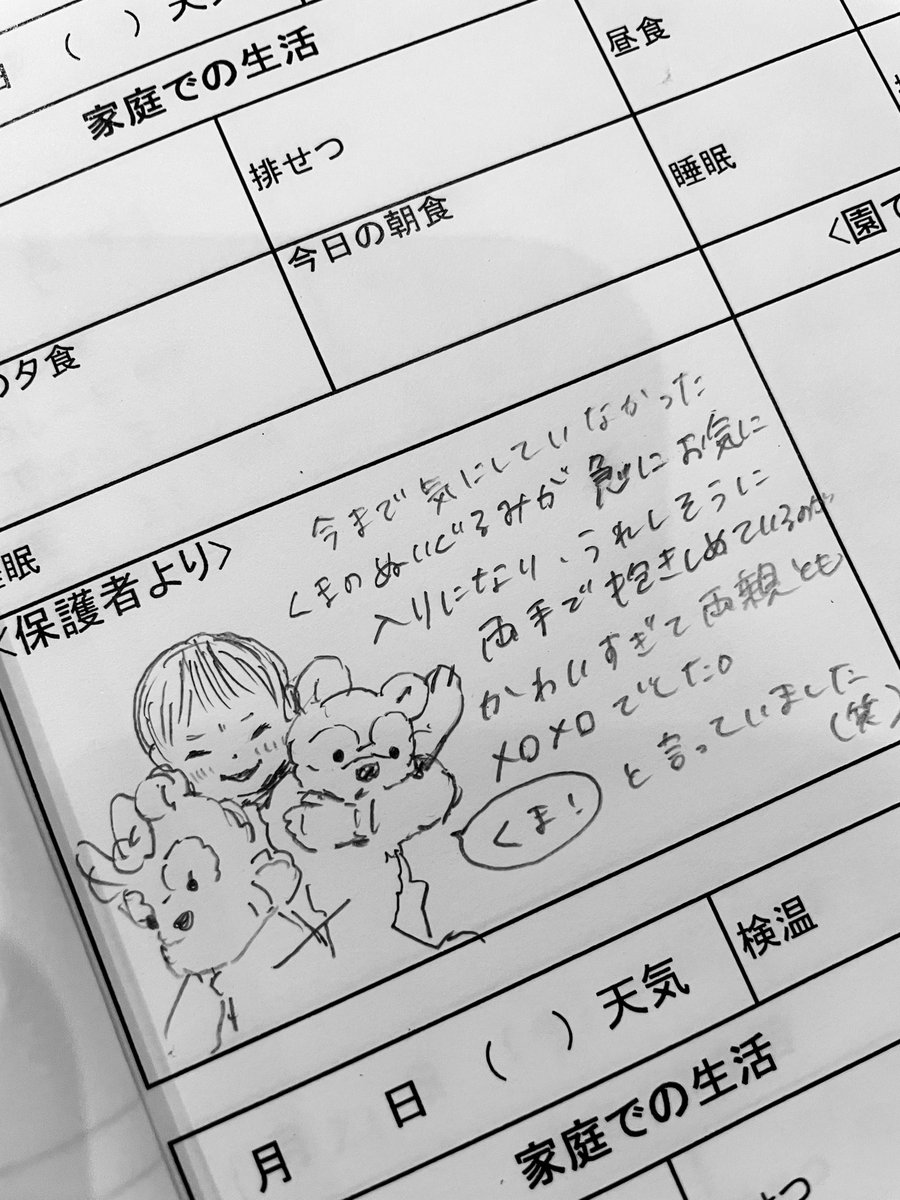 日 ( ) 天気
家庭での生活
昼食
排せつ
睡眠
今日の朝食
<園で
の夕食
睡眠
<保護者より>
今まで気にしていなかった
くまのぬいぐるみが急にお気に
入りになり、うれしそうに
両手で抱きしめているのが
かわいすぎて両親とも
メロメロでした。
くま! と言っていました
(笑)
月 日 ( ) 天気
検温
家庭での生活
せつ